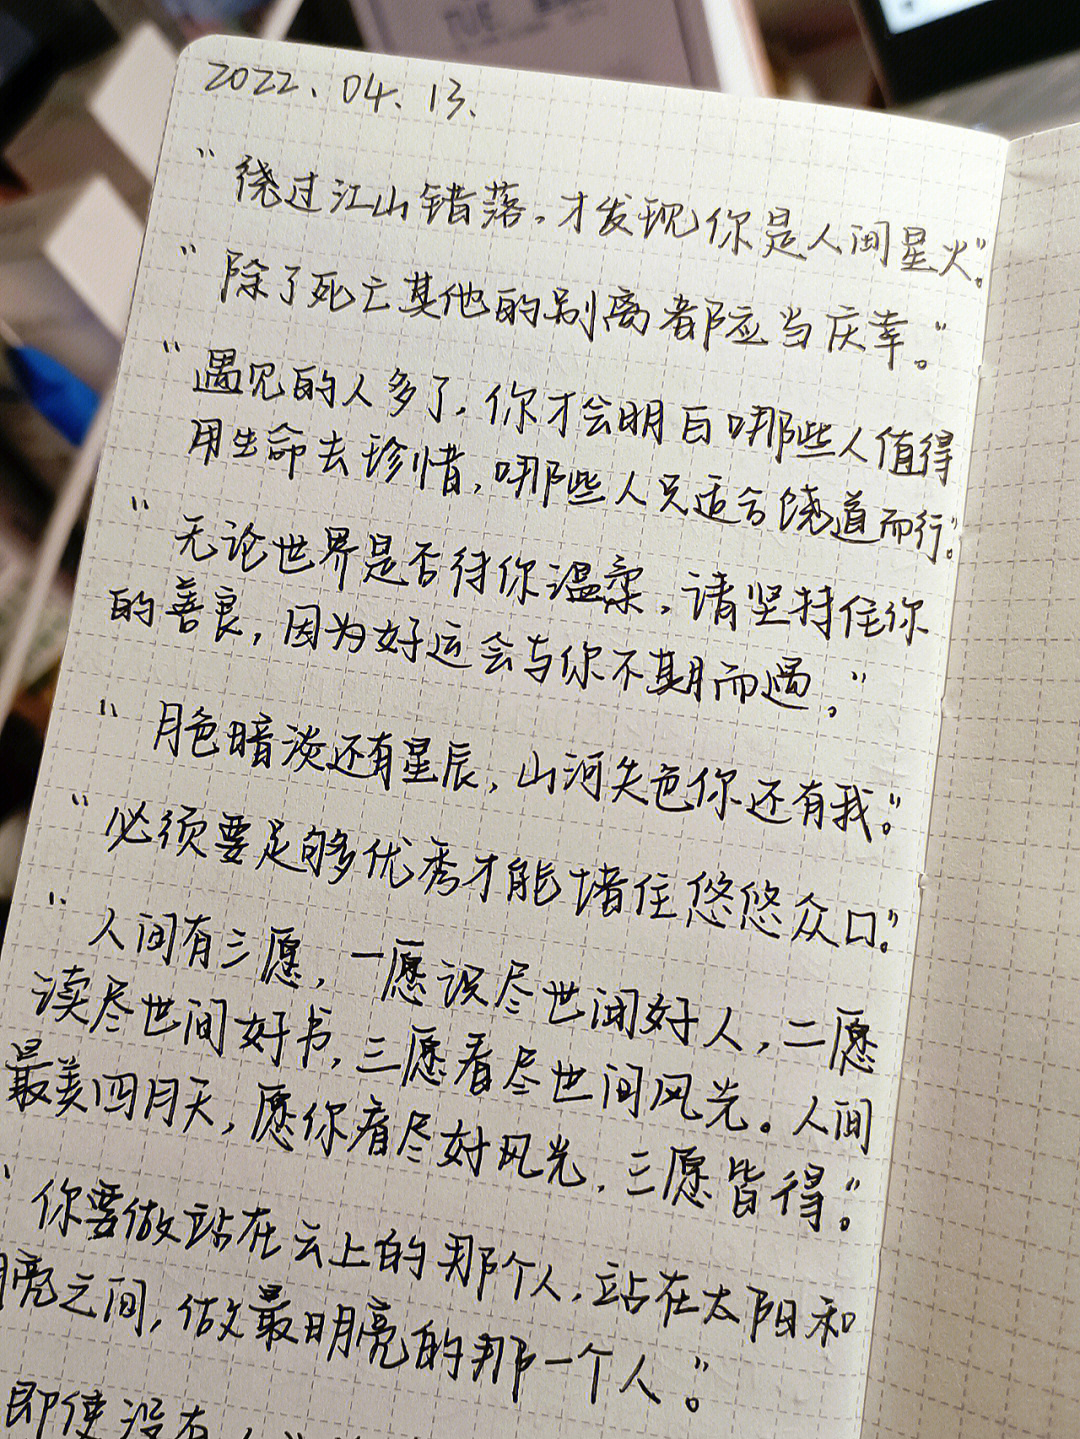 2022.04.13.
"绕过江山错落,才发现你是人间星火"。
"除了死亡其他的别离都应当庆幸。"
"遇见的人多了,你才会明白哪些人值得
用生命去珍惜,哪些人只适合绕道而行"。
"无论世界是否待你温柔,请坚持住你
的善良,因为好运会与你不期而遇。"
"月色暗淡还有星辰,山河失色你还有我"。
"必须要足够优秀才能堵住悠悠众口"。
"人间有三愿,一愿识尽世间好人,二愿
读尽世间好书,三愿看尽世间风光。人间
最美四月天,愿你看尽好风光,三愿皆得"。
"你要做站在云上的那个人,站在太阳和
月亮之间,做最明亮的那一个人"。
即使没有